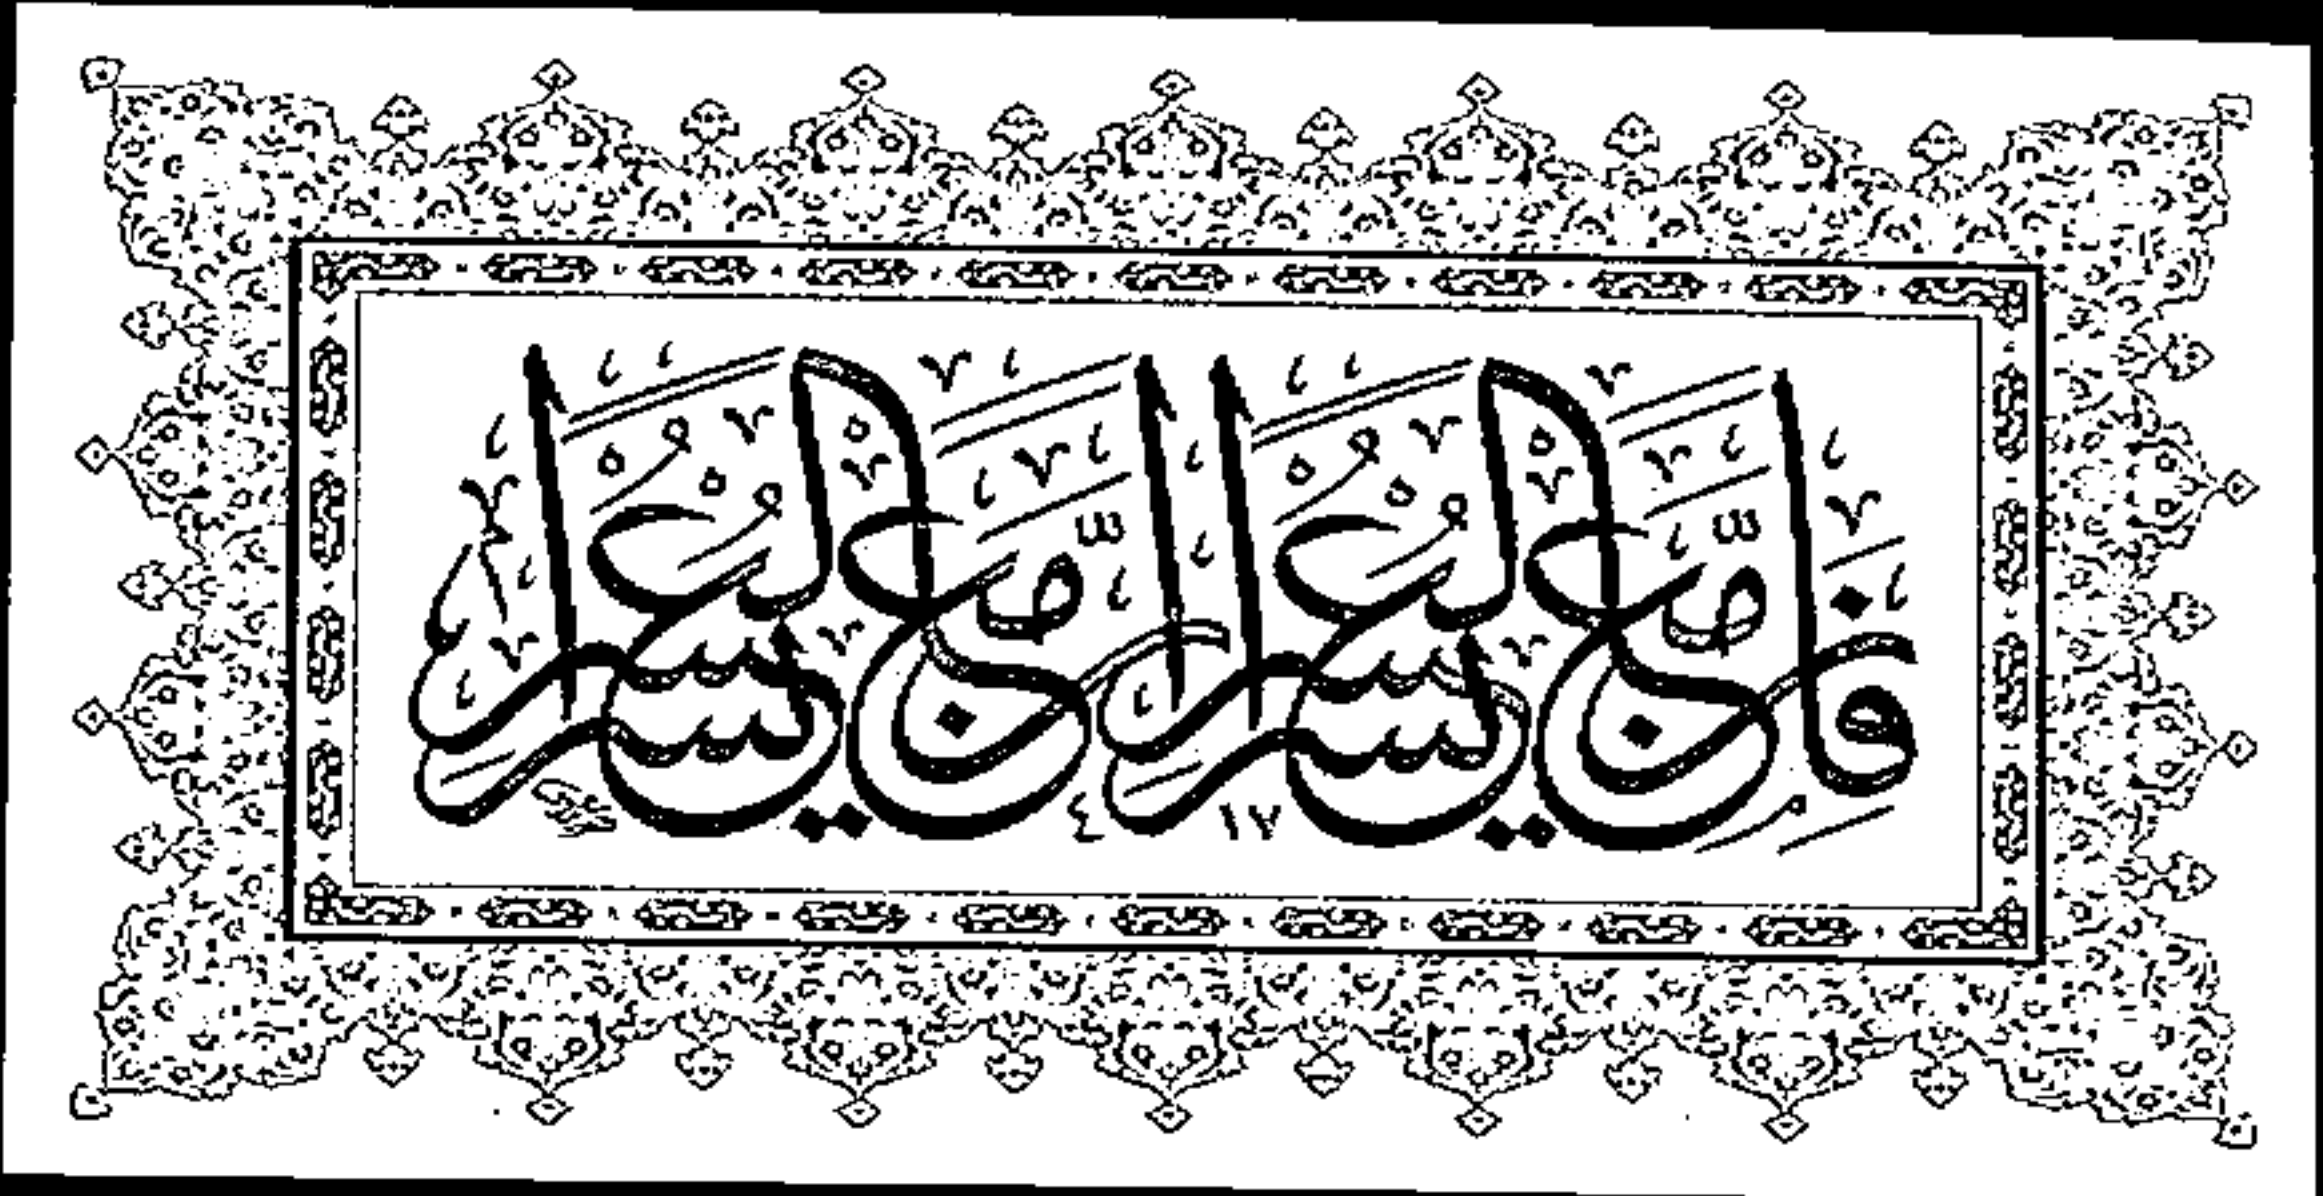 فَإِنَّ مَعَ الْعُسْرِ يُسْرًا إِنَّ مَعَ الْعُسْرِ يُسْرًا
١٤١٧